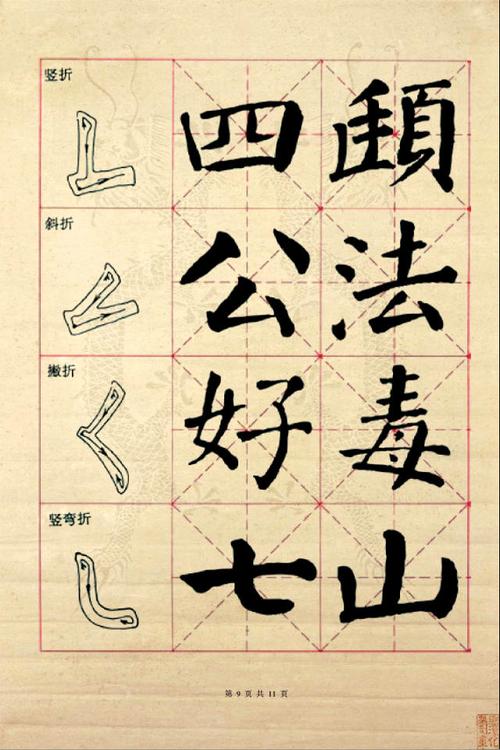 竖折
四
顊
斜折
公
法
撇折
好
毒
竖弯折
七
山
第 9 页 共 11 页